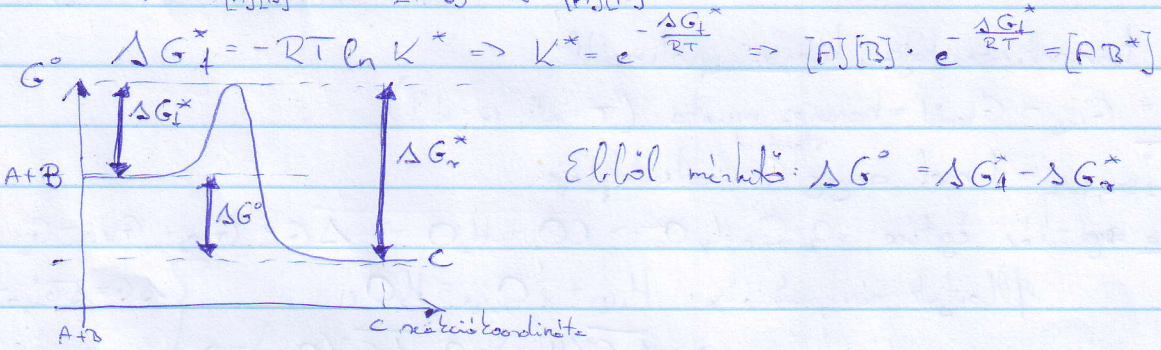 ΔG₁* = -RT ln K* => K* = e^(-ΔG₁*/RT) => [A][B] · e^(-ΔG₁*/RT) = [AB*]
G°
ΔG₁*
ΔGᵣ*
A+B
Ebből mérhető: ΔG° = ΔG₁* - ΔGᵣ*
ΔG°
C
C reakciókoordináta
A+B